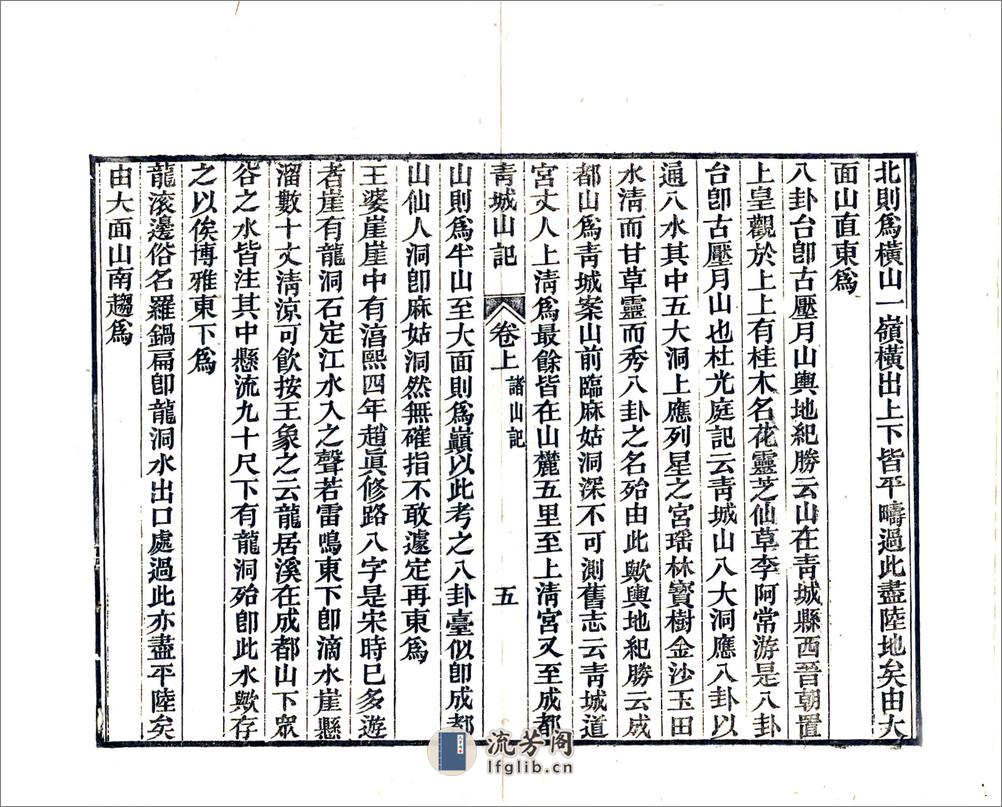 北則爲橫山一嶺橫出上下皆平疇過此盡陸地矣由大
面山直東爲
八卦台卽古壓月山輿地紀勝云山在靑城縣西晉朝置
上皇觀於上上有桂木名花靈芝仙草李阿常游是八卦
台卽古壓月山也杜光庭記云靑城山八大洞應八卦以
通八水其中五大洞上應列星之宮瑶林寶樹金沙玉田
水淸而甘草靈而秀八卦之名殆由此歟輿地紀勝云成
都山爲靑城案山前臨麻姑洞深不可測舊志云靑城道
宮丈人上淸爲最餘皆在山麓五里至上淸宮又至成都
靑城山記 卷上 諸山記 五
山則爲半山至大面則爲巔以此考之八卦臺似卽成都
山仙人洞卽麻姑洞然無確指不敢遽定再東爲
王婆崖崖中有淳熙四年趙眞修路八字是宋時已多遊
者崖有龍洞石定江水入之聲若雷鳴東下卽滴水崖懸
溜數十丈淸涼可飮按王象之云龍居溪在成都山下眾
谷之水皆注其中懸流九十尺下有龍洞殆卽此水歟存
之以俟博雅東下爲
龍滚邊俗名羅鍋扁卽龍洞水出口處過此亦盡平陸矣
由大面山南趨爲
流芳阁
lfglib.cn